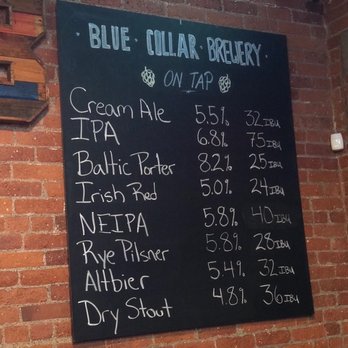 BLUE COLLAR BREWERY
ON TAP
Cream Ale 5.5% 32 IBU
IPA 6.8% 75 IBU
Baltic Porter 8.2% 25 IBU
Irish Red 5.0% 24 IBU
NEIPA 5.8% 40 IBU
Rye Pilsner 5.8% 28 IBU
Altbier 5.4% 32 IBU
Dry Stout 4.8% 36 IBU